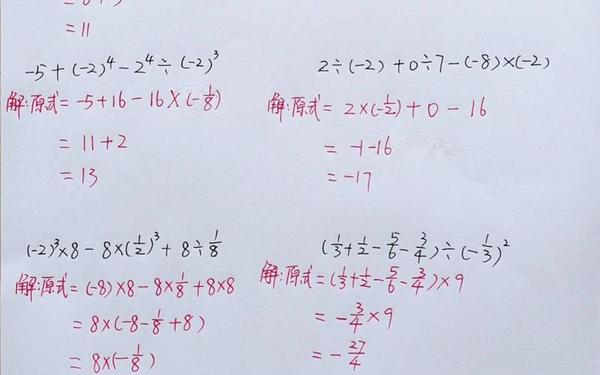 = 11
-5+(-2)⁴-2⁴÷(-2)³
解:原式= -5+16-16×(-1/8)
= 11+2
= 13
2÷(-2)+0÷7-(-8)×(-2)
解:原式= 2×(-1/2)+0-16
= -1-16
= -17
(-2)³×8-8×(1/2)³+8÷1/8
解:原式= (-8)×8-8×1/8+8×8
= 8×(-8-1/8+8)
= 8×(-1/8)
(1/3+1/2-5/6-3/4)÷(-1/3)²
解:原式=(1/3+1/2-5/6-3/4)×9
= -3/4×9
= -27/4